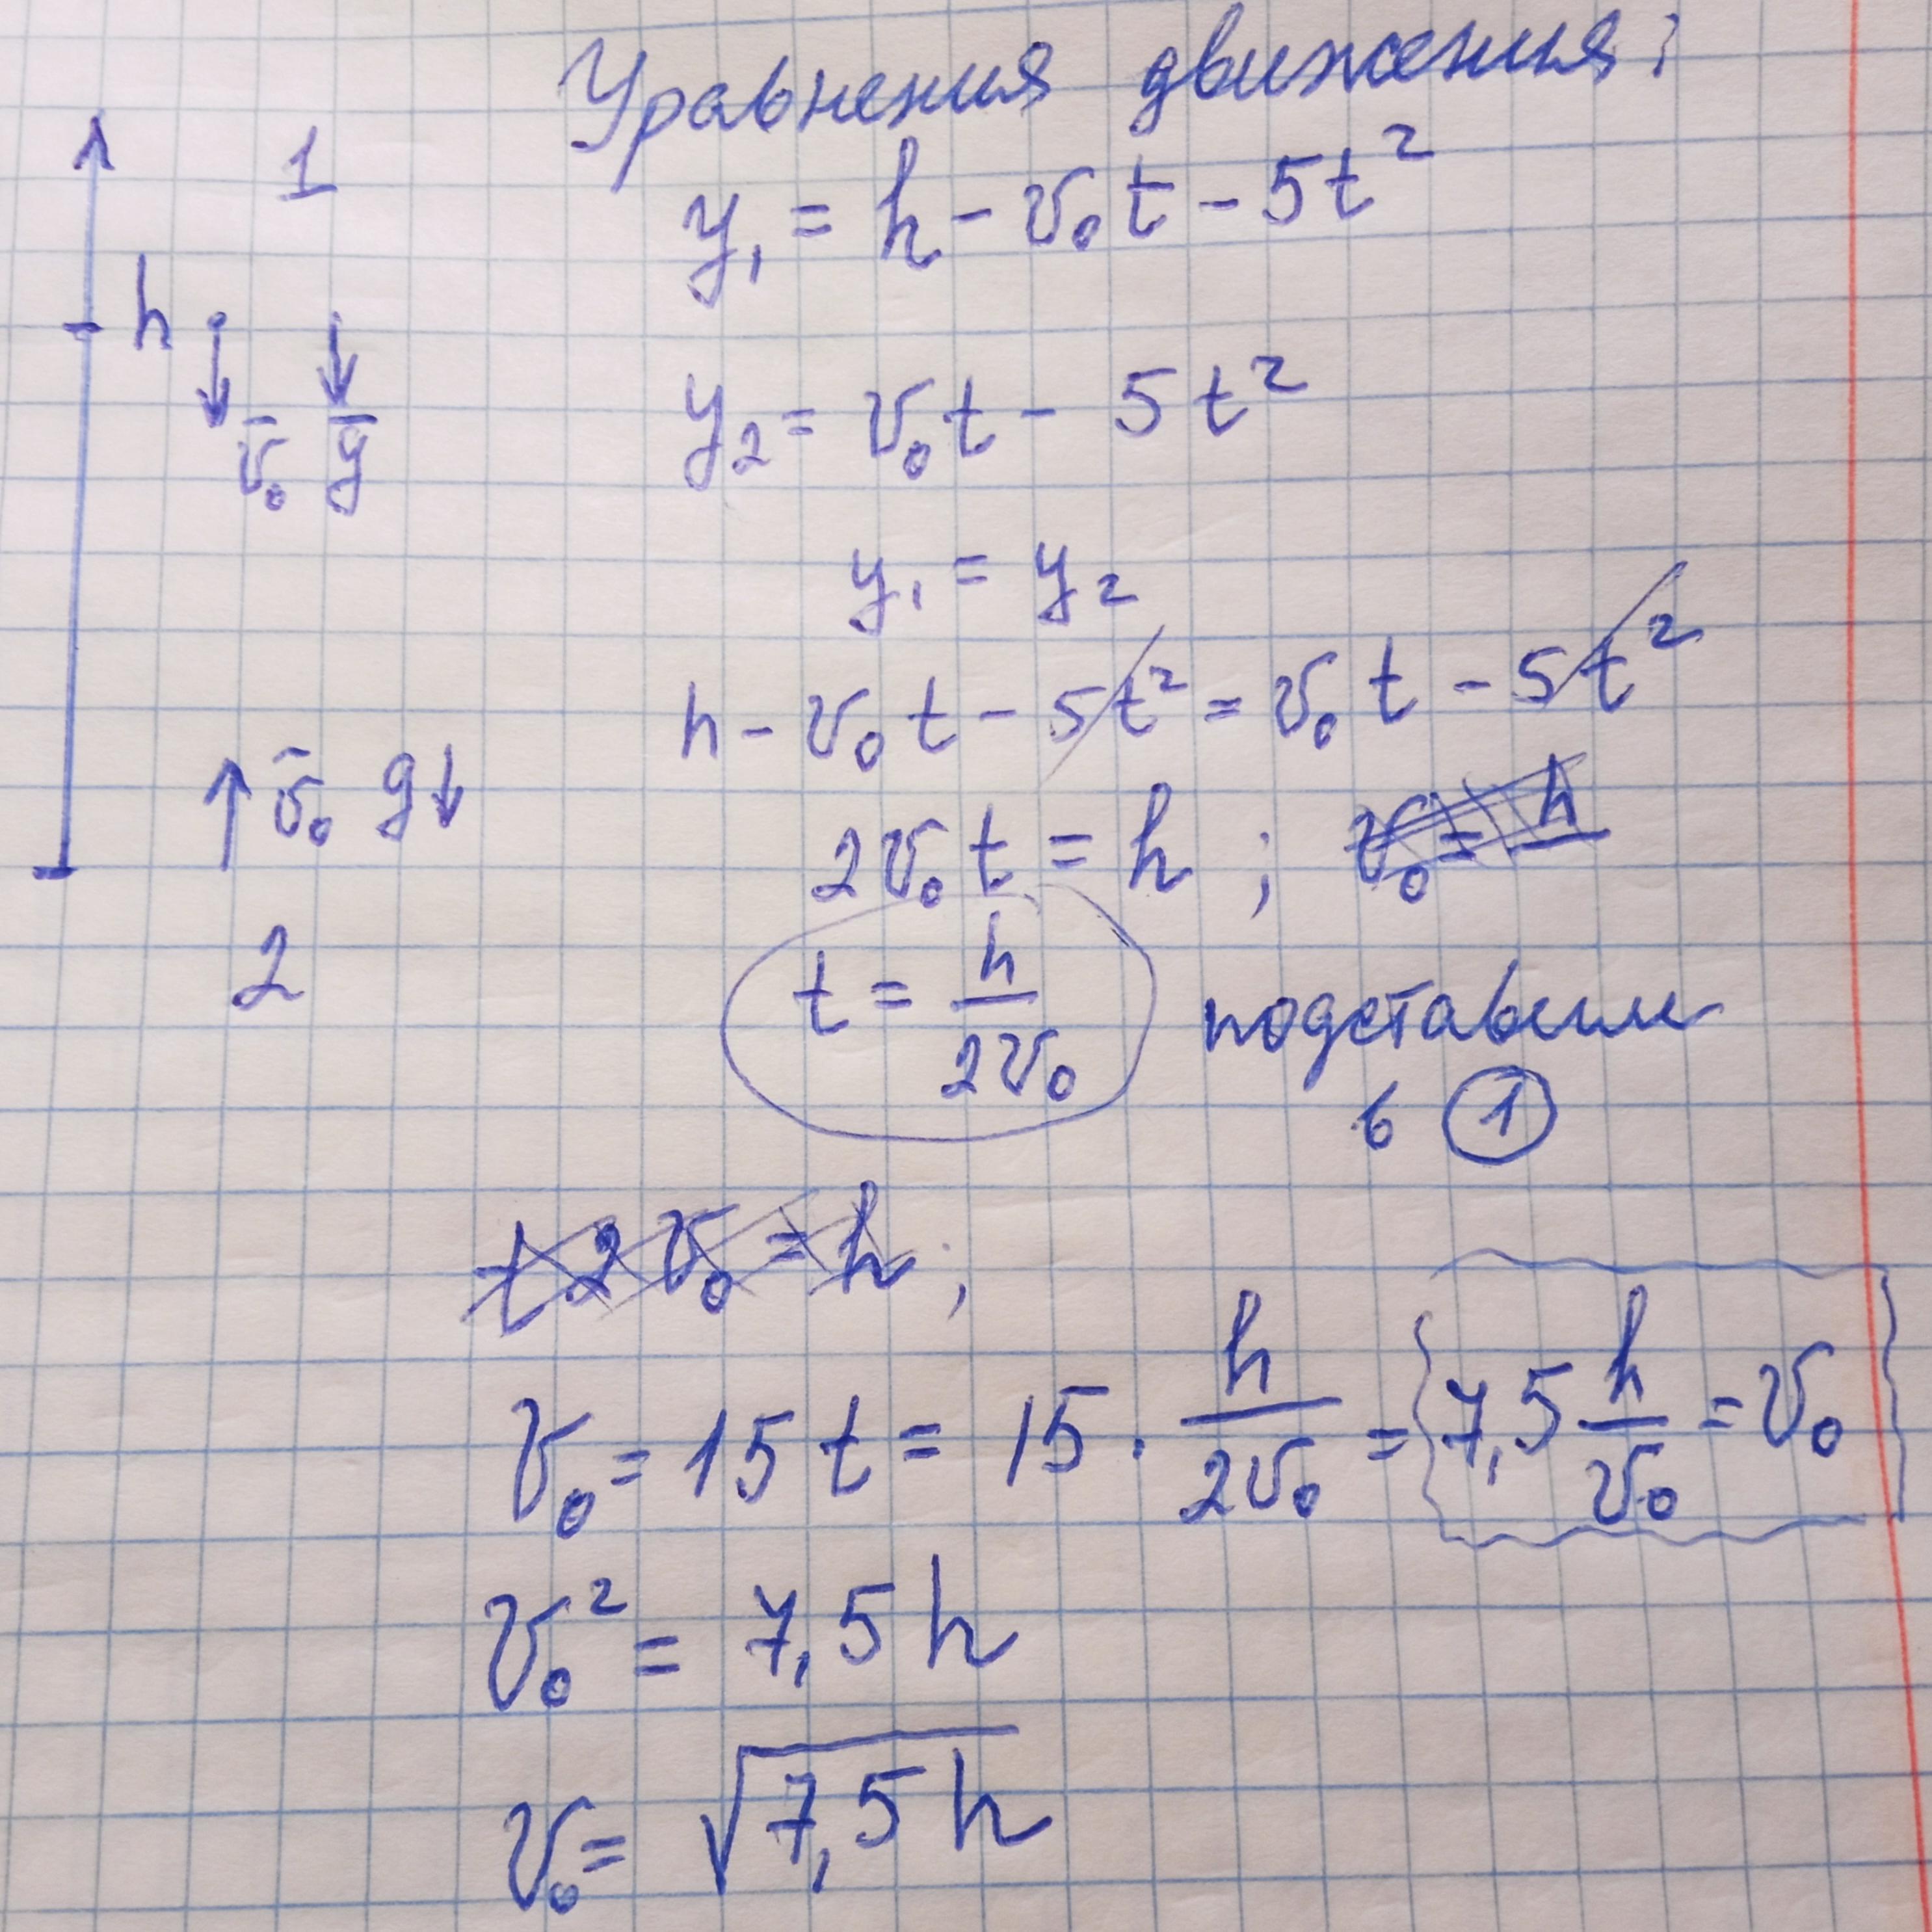 Уравнения движения:
1
y₁ = h - v₀t - 5t²
h
v̄₀ ḡ
y₂ = v₀t - 5t²
y₁ = y₂
h - v₀t - 5t² = v₀t - 5t²
v̄₀ g
2v₀t = h ; v₀ = h
2
t = h/2v₀ подставим
в ①
t2v₀ = h ;
v₀ = 15t = 15 · h/2v₀ = 7,5 h/v₀ = v₀
v₀² = 7,5h
v₀ = √7,5h